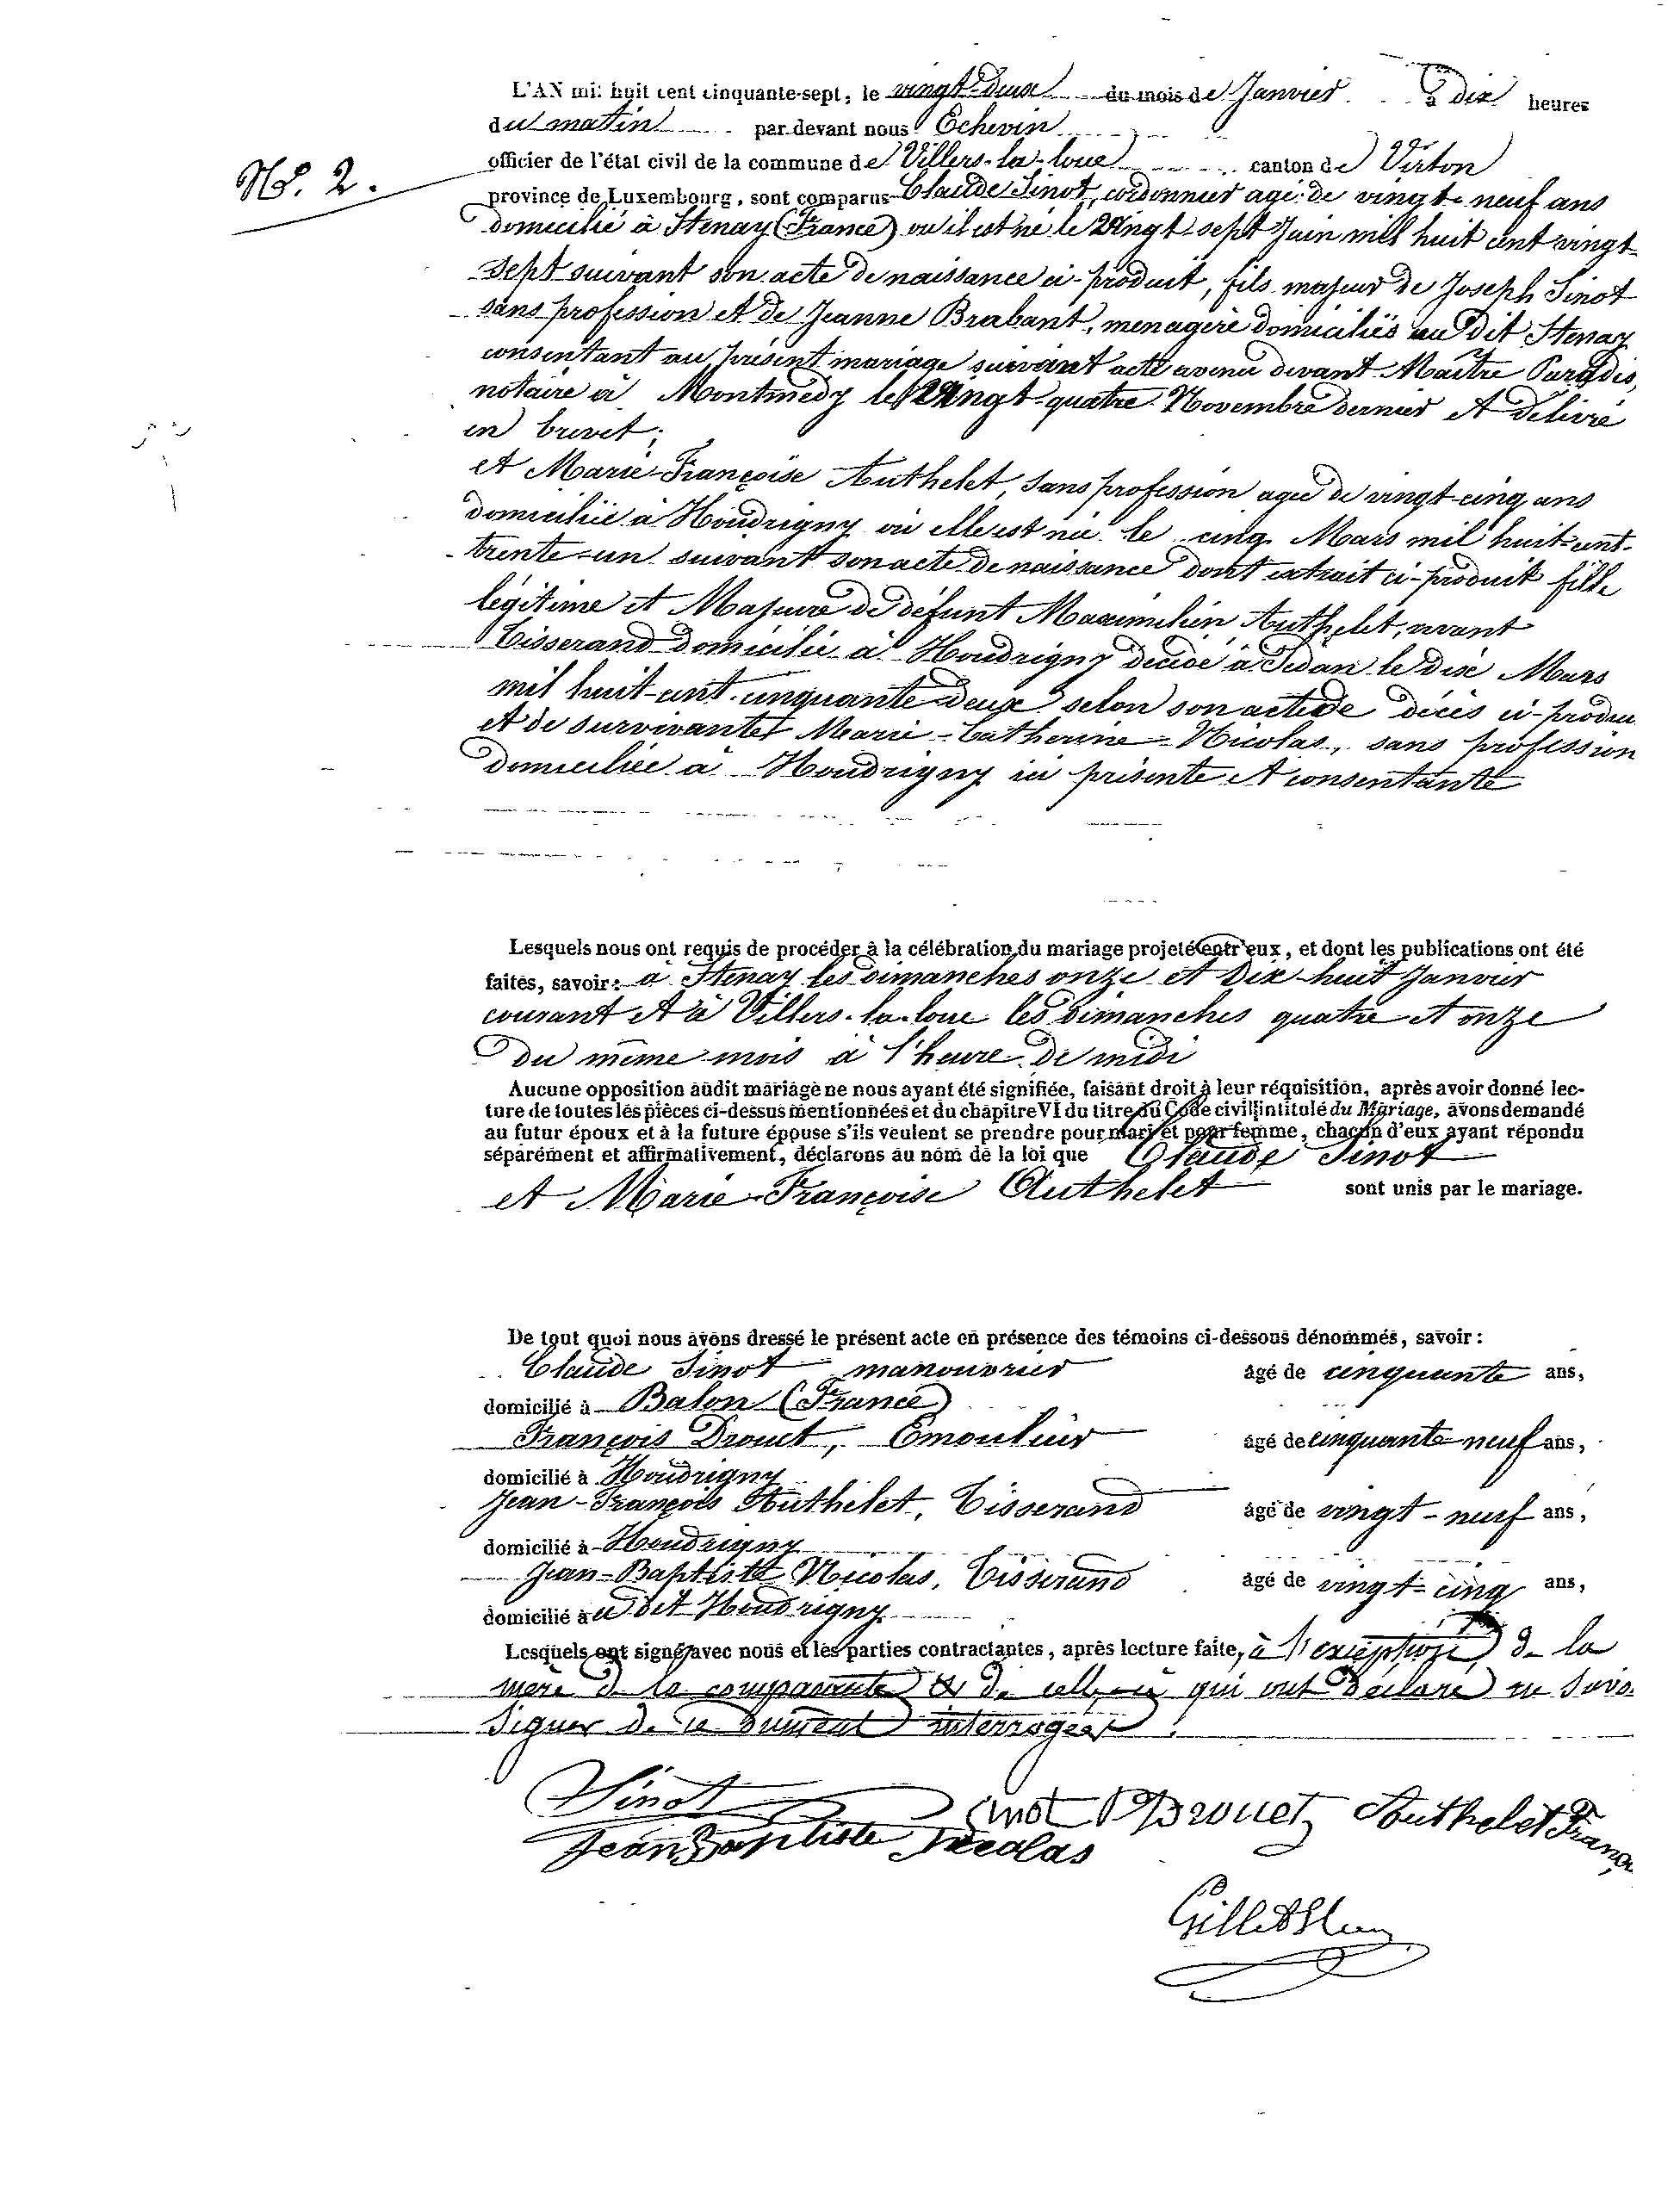 L'AN mil huit cent cinquante-sept, le vingt-deux du mois de Janvier à dix heures
du matin par devant nous Echevin
officier de l'état civil de la commune de Villers-la-loue canton de Virton
N°. 2.
province de Luxembourg, sont comparus Claude Sinot, cordonnier agé de vingt-neuf ans
domicilié à Stenay (France) où il est né le vingt-sept Juin mil huit cent vingt-
sept suivant son acte de naissance ci-produit, fils majeur de Joseph Sinot
sans profession et de Jeanne Brabant, menagère domiciliés au dit Stenay
consentant au présent mariage suivant acte avenu devant Maître Paradis,
notaire à Montmédy le vingt-quatre Novembre dernier et délivré
en brevet;
et Marie-Françoise Authelet, sans profession agée de vingt-cinq ans
domiciliée à Houdrigny où elle est née le cinq Mars mil huit-cent-
trente-un suivant son acte de naissance dont extrait ci-produit fille
légitime et Majeure de défunt Maximilien Authelet, vivant
Tisserand domicilié à Houdrigny décédé à Sedan le dix Mars
mil huit-cent-cinquante-deux selon son acte de décès ci-produi
et de survivante Marie-Catherine Nicolas, sans profession
domiciliée à Houdrigny ici présente et consentante
Lesquels nous ont requis de procéder à la célébration du mariage projeté entr'eux, et dont les publications ont été
faites, savoir: à Stenay les dimanches onze et dix-huit Janvier
courant et à Villers-la-loue les dimanches quatre et onze
du même mois à l'heure de midi
Aucune opposition audit mariage ne nous ayant été signifiée, faisant droit à leur réquisition, après avoir donné lec-
ture de toutes les pièces ci-dessus mentionnées et du chapitre VI du titre du Code civil intitulé du Mariage, avons demandé
au futur époux et à la future épouse s'ils veulent se prendre pour mari et pour femme, chacun d'eux ayant répondu
séparément et affirmativement, déclarons au nom de la loi que Claude Sinot
et Marie-Françoise Authelet sont unis par le mariage.
De tout quoi nous avons dressé le présent acte en présence des témoins ci-dessous dénommés, savoir:
Claude Sinot manouvrier âgé de cinquante ans,
domicilié à Balon (France)
François Drouet, Emouleur âgé de cinquante-neuf ans,
domicilié à Houdrigny
Jean-François Authelet, Tisserand âgé de vingt-neuf ans,
domicilié à Houdrigny
Jean-Baptiste Nicolas, Tisserand âgé de vingt-cinq ans,
domicilié au dit Houdrigny
Lesquels ont signé avec nous et les parties contractantes, après lecture faite, à l'exception de la
mère de la comparante & de celle-ci qui ont déclaré ne savo
signer de ce dument interrogées.
Sinot Sinot Drouet Authelet Franç
Jean Baptiste Nicolas